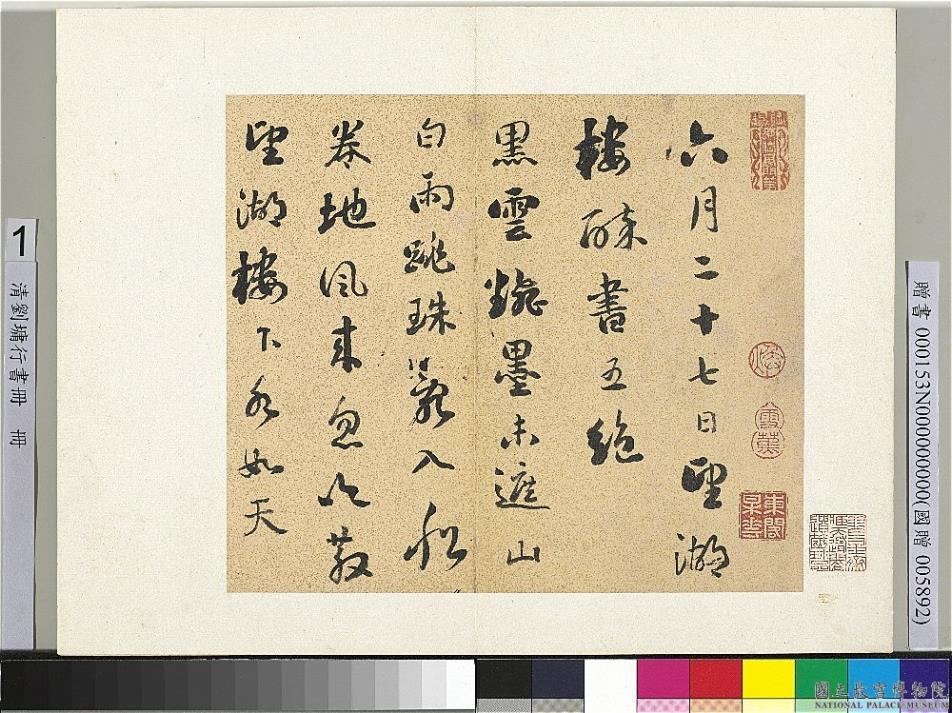 六月二十七日望湖
樓醉書五絕
黑雲翻墨未遮山
白雨跳珠亂入船
卷地風來忽吹散
望湖樓下水如天
雪蕉
東閣
1
清劉墉行書冊 冊
贈書 000153N000000000(國贈 005892)
國立故宮博物院
NATIONAL PALACE MUSEUM